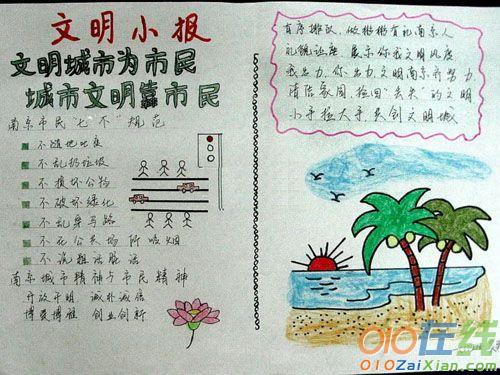 文明小报
文明城市为市民
城市文明靠市民
南京市民"七不"规范
不随地吐痰
不乱扔垃圾
不损坏公物
不破坏绿化
不乱穿马路
不在公共场所吸烟
不说粗话脏话
南京城市精神与市民精神
开放开明 诚朴诚信
博爱博雅 创业创新
有序排队,做彬彬有礼南京人
礼貌让座,展示你我文明风度
我出力,你出力,文明南京齐努力
清洁家园,捡回"丢失"的文明
小手拉大手,共创文明城
010在线
010ZaiXian.com